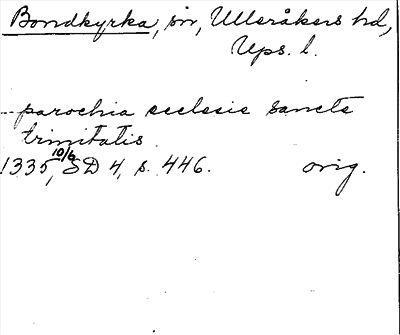 Bondkyrka, sn, Ulleråkers hd,
Ups. l.
-- parochia ecclesie sancte
trinitatis.
1335, 10/6 SD 4, s. 446. orig.